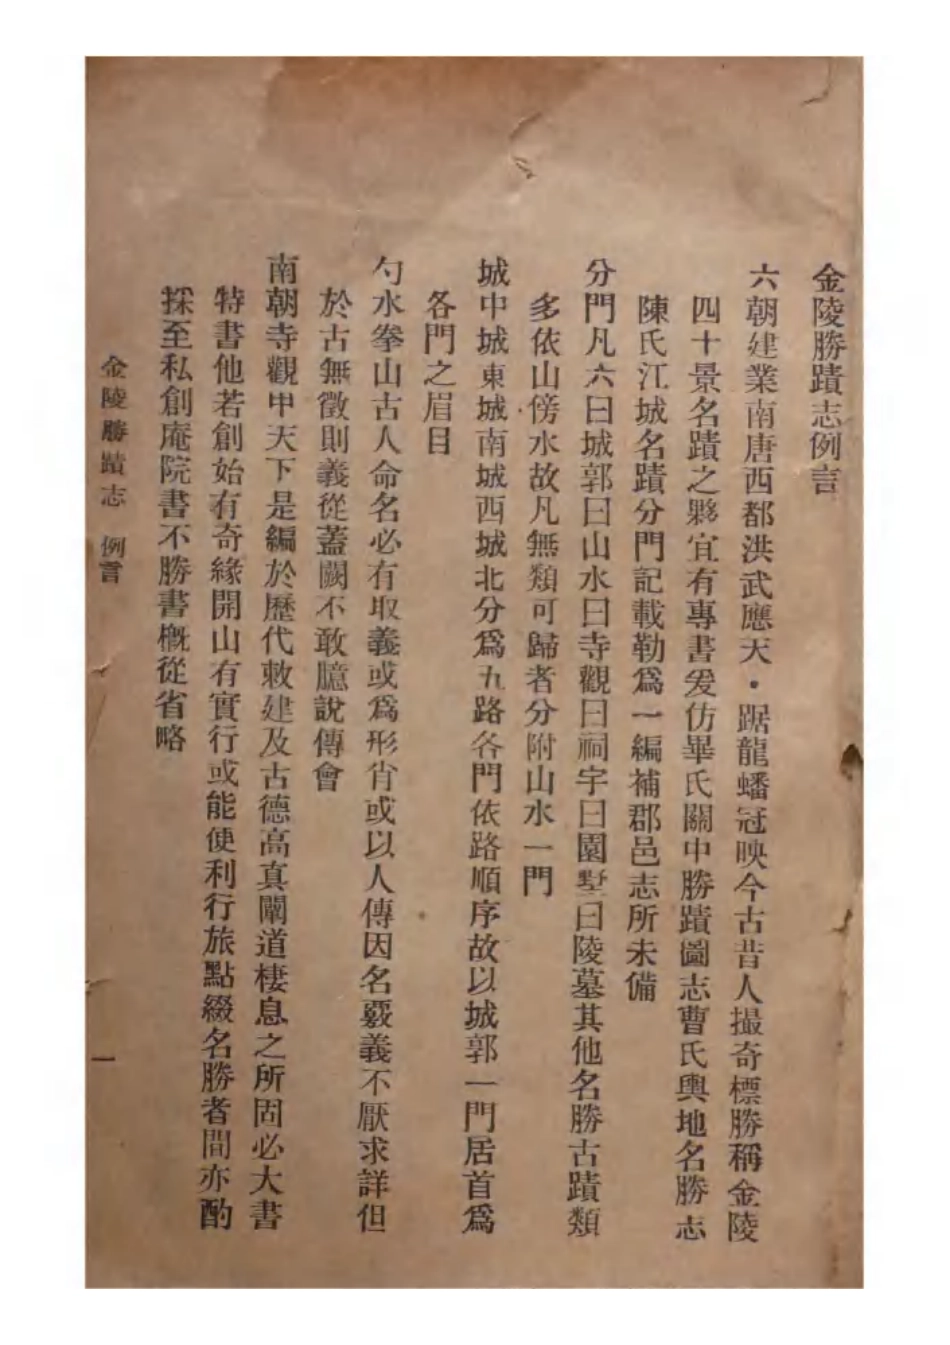 金陵勝蹟志例言
六朝建業南唐西都洪武應天・踞龍蟠冠映今古昔人撮奇標勝稱金陵
四十景名蹟之夥宜有專書爰仿畢氏關中勝蹟圖志曹氏輿地名勝志
陳氏江城名蹟分門記載勒爲一編補郡邑志所未備
分門凡六曰城郭曰山水曰寺觀曰祠宇曰園墅曰陵墓其他名勝古蹟類
多依山傍水故凡無類可歸者分附山水一門
城中城東城南城西城北分爲五路各門依路順序故以城郭一門居首爲
各門之眉目
勺水拳山古人命名必有取義或爲形肖或以人傳因名覈義不厭求詳但
於古無徵則義從蓋闕不敢臆說傳會
南朝寺觀甲天下是編於歷代敕建及古德高真闡道棲息之所固必大書
特書他若創始有奇緣開山有實行或能便利行旅點綴名勝者間亦酌
採至私創庵院書不勝書概從省略
金陵勝蹟志 例言
一